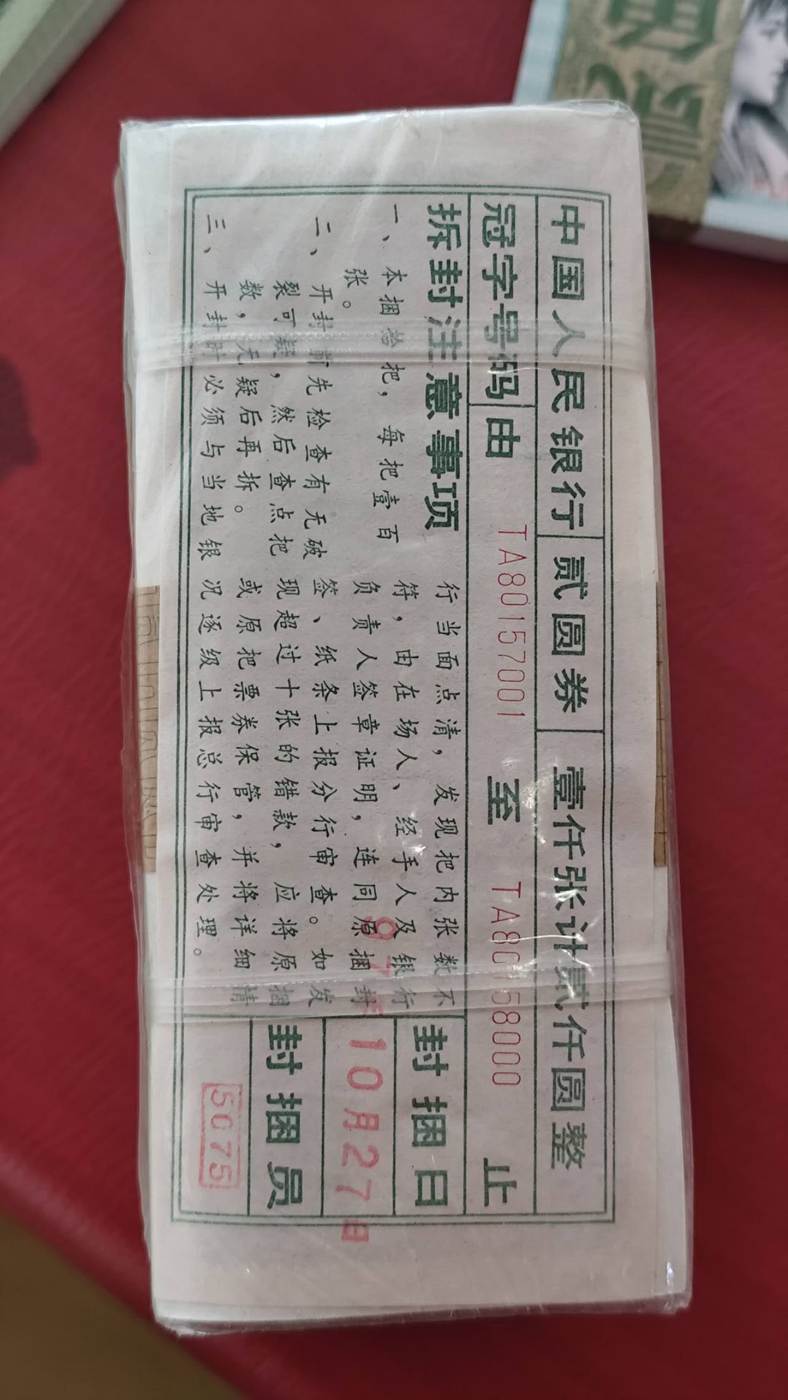 中国人民银行 贰圆券 壹仟张计贰仟圆整
冠字号码 由 TA80157001 至 TA80158000 止
拆封注意事项
一、本捆拾把，每把壹百
张。
二、开封前先检查有无破
裂可疑，然后查点把
数，无疑后再拆。
三、开封时必须与当地银
行当面点清，发现把内张数不
符，由在场人、经手人及银行
负责人签章证明，连同原捆封
签、纸条上报分行审查。如发
现超过十张的错款，应将原捆
或原把票券保管，并将详细情
况逐级上报总行审查处理。
封捆日
10月27日
封捆员
5075
贰角